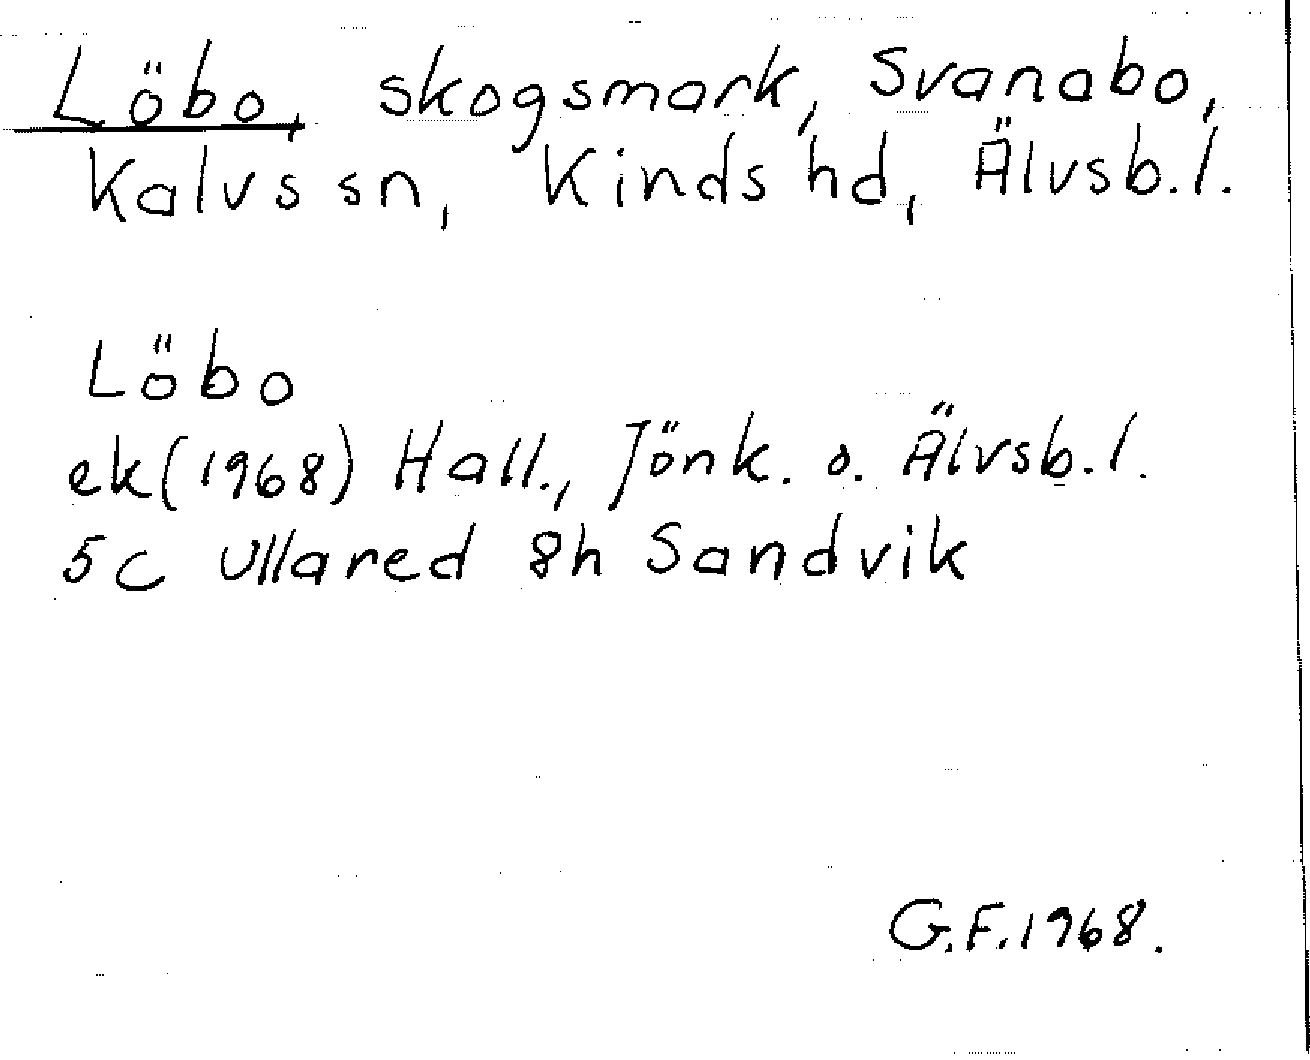 Löbo, skogsmark, Svanabo,
Kalvs sn, Kinds hd, Älvsb.l.
Löbo
ek(1968) Hall., Jönk. o. Älvsb.l.
5c Ullared 8h Sandvik
G.F.1968.